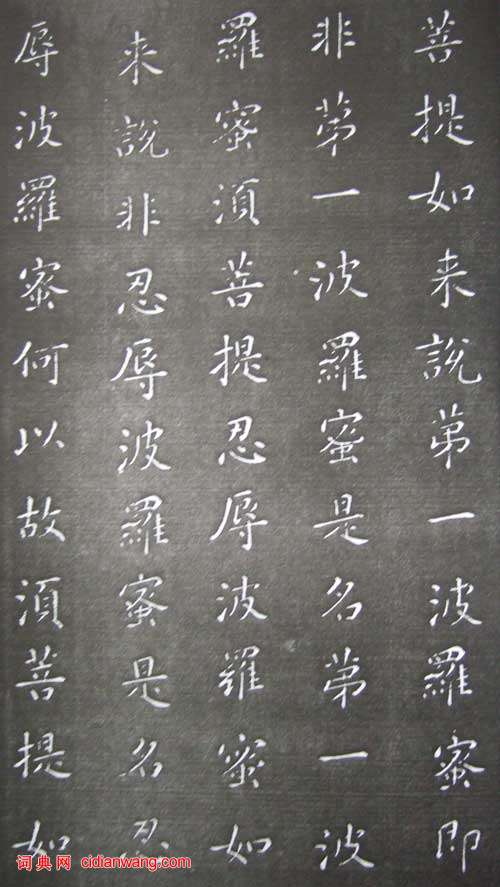 菩提如来說苐一波羅蜜即
非苐一波羅蜜是名苐一波
羅蜜湏菩提忍辱波羅蜜如
来說非忍辱波羅蜜是名忍
辱波羅蜜何以故湏菩提如
词典网 cidianwang.com